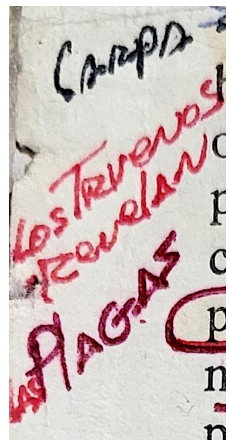 CARPA
Los TRUENOS
REVELAN
LAS PLAGAS